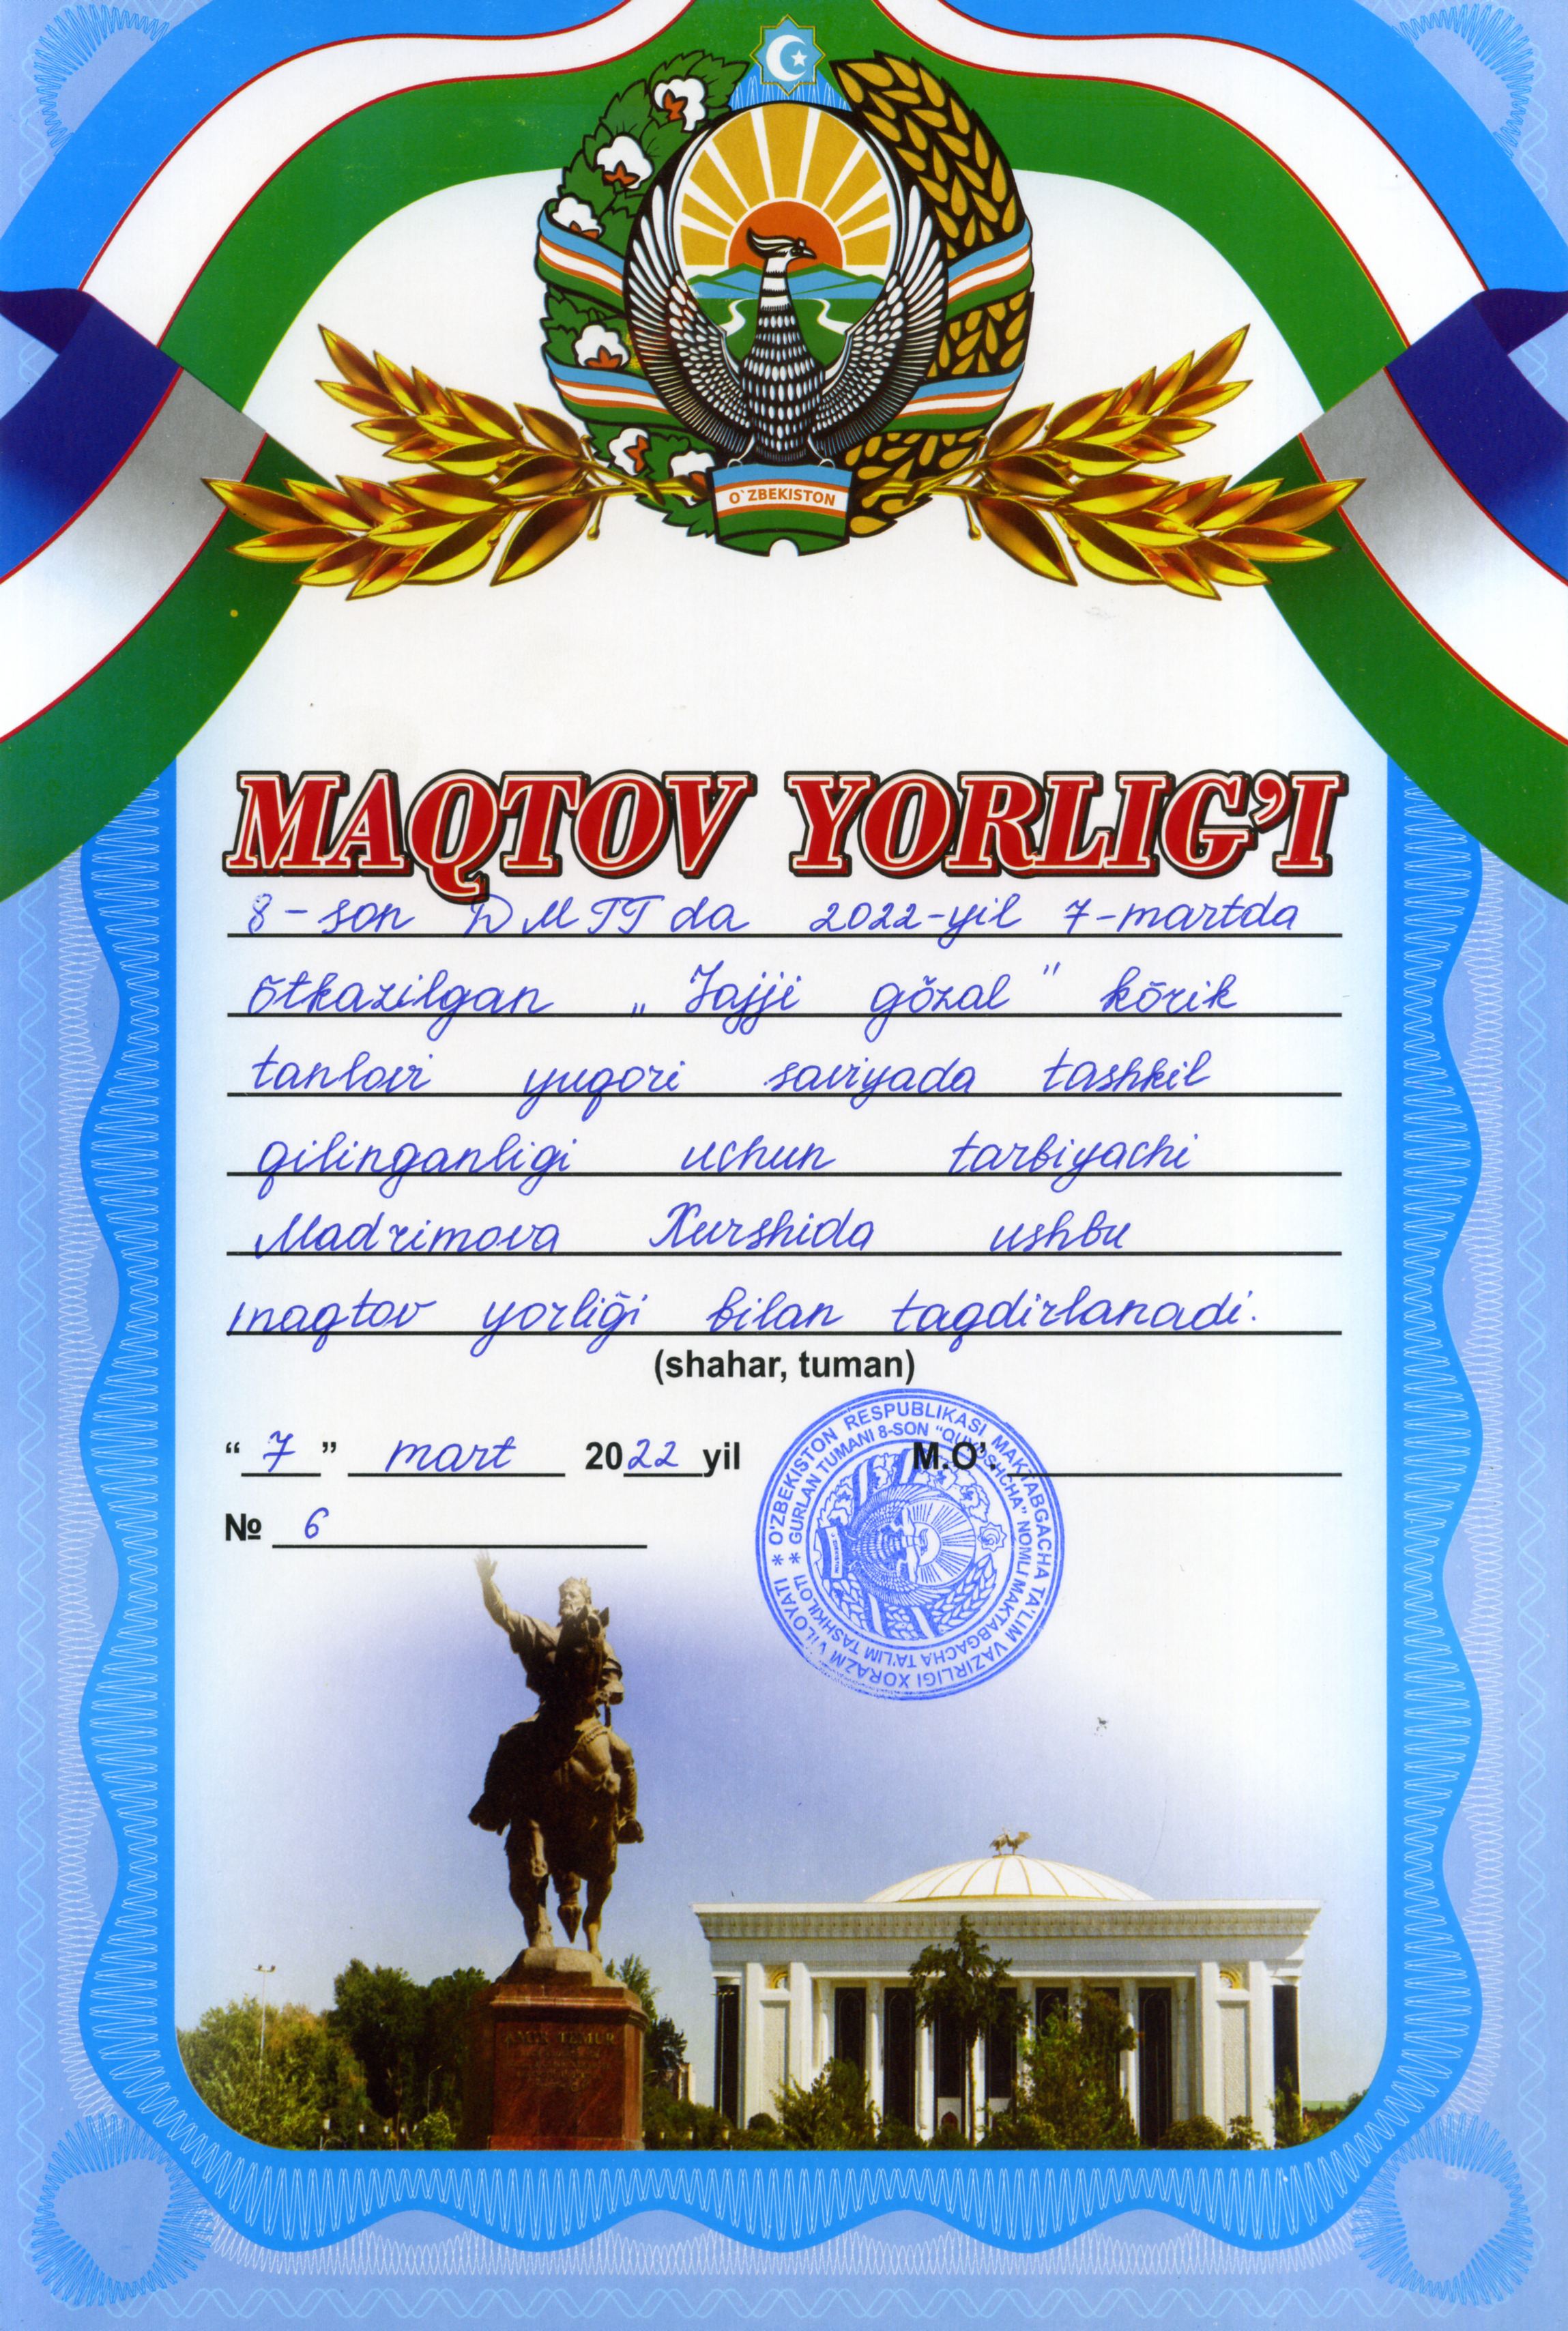 O`ZBEKISTON
MAQTOV YORLIG’I
8-son DMTT da 2022-yil 7-martda
õtkazilgan „Jajji gõzal" kõrik
tanlovi yuqori saviyada tashkil
qilinganligi uchun tarbiyachi
Madrimova Xurshida ushbu
maqtov yorlig̃i bilan taqdirlanadi.
(shahar, tuman)
“ 7 ” mart 2022 yil M.O’.
№ 6
* O'ZBEKISTON RESPUBLIKASI MAKTABGACHA TA'LIM VAZIRLIGI XORAZM VILOYATI
* GURLAN TUMANI 8-SON "QUYOSHCHA" NOMLI MAKTABGACHA TA'LIM TASHKILOTI
AMIR TEMUR